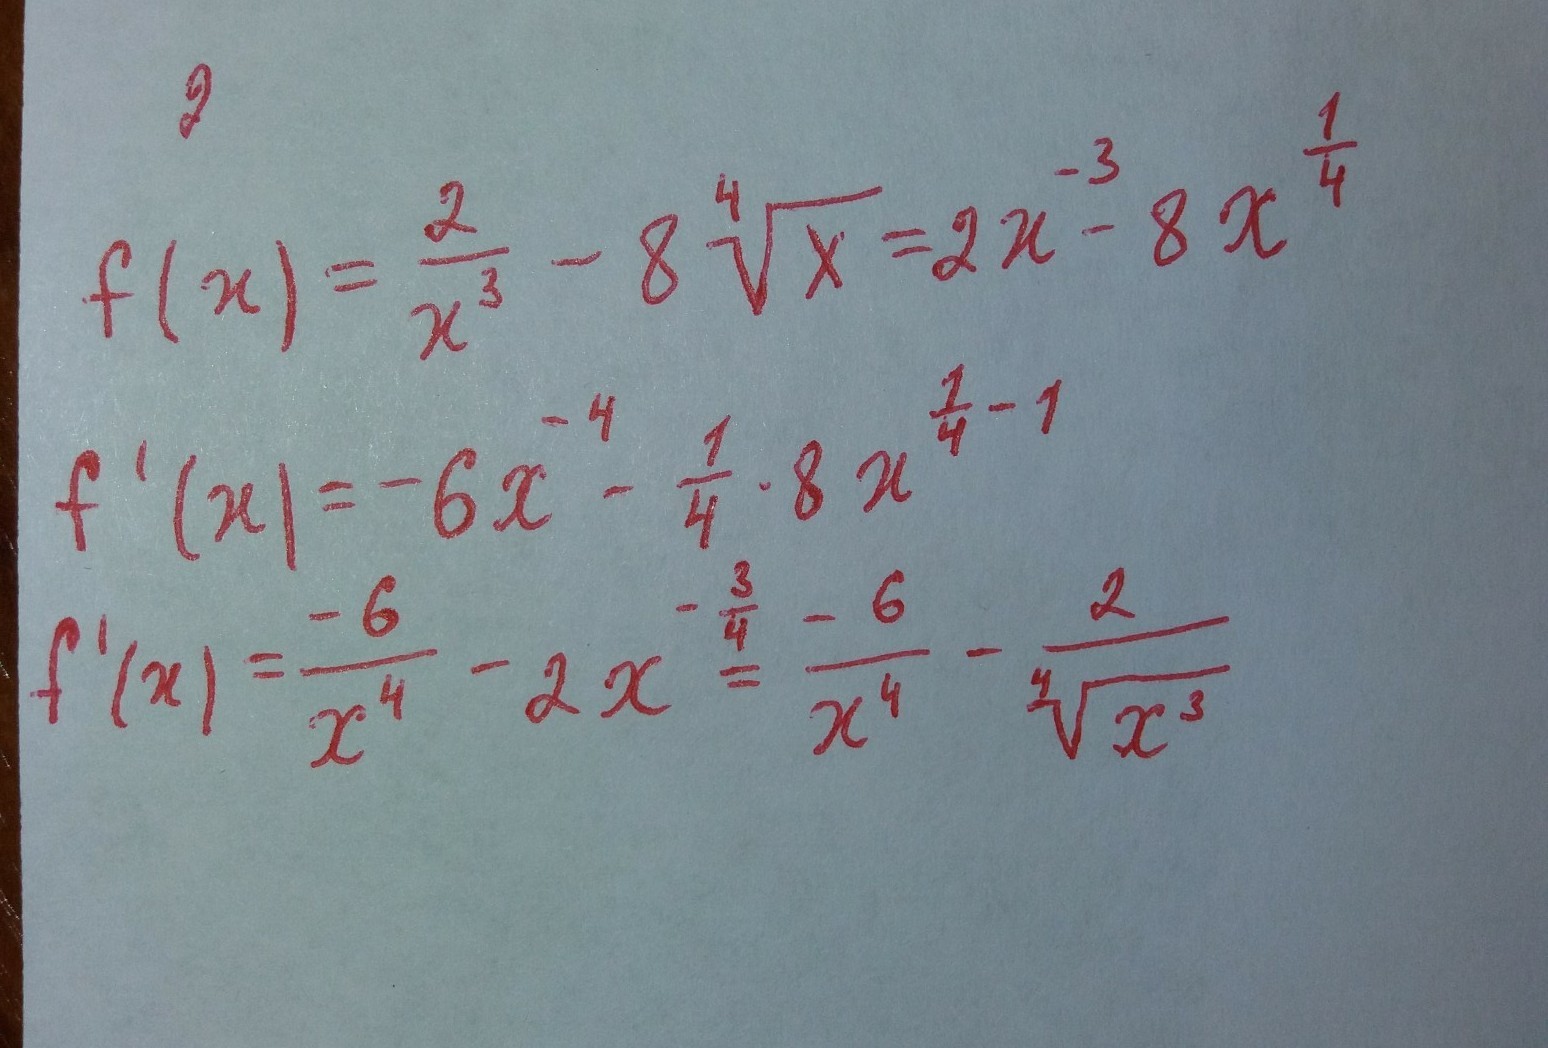 2
f(x) = \frac{2}{x^3} - 8\sqrt[4]{x} = 2x^{-3} - 8x^{\frac{1}{4}}
f'(x) = -6x^{-4} - \frac{1}{4} \cdot 8x^{\frac{1}{4}-1}
f'(x) = \frac{-6}{x^4} - 2x^{-\frac{3}{4}} = \frac{-6}{x^4} - \frac{2}{\sqrt[4]{x^3}}